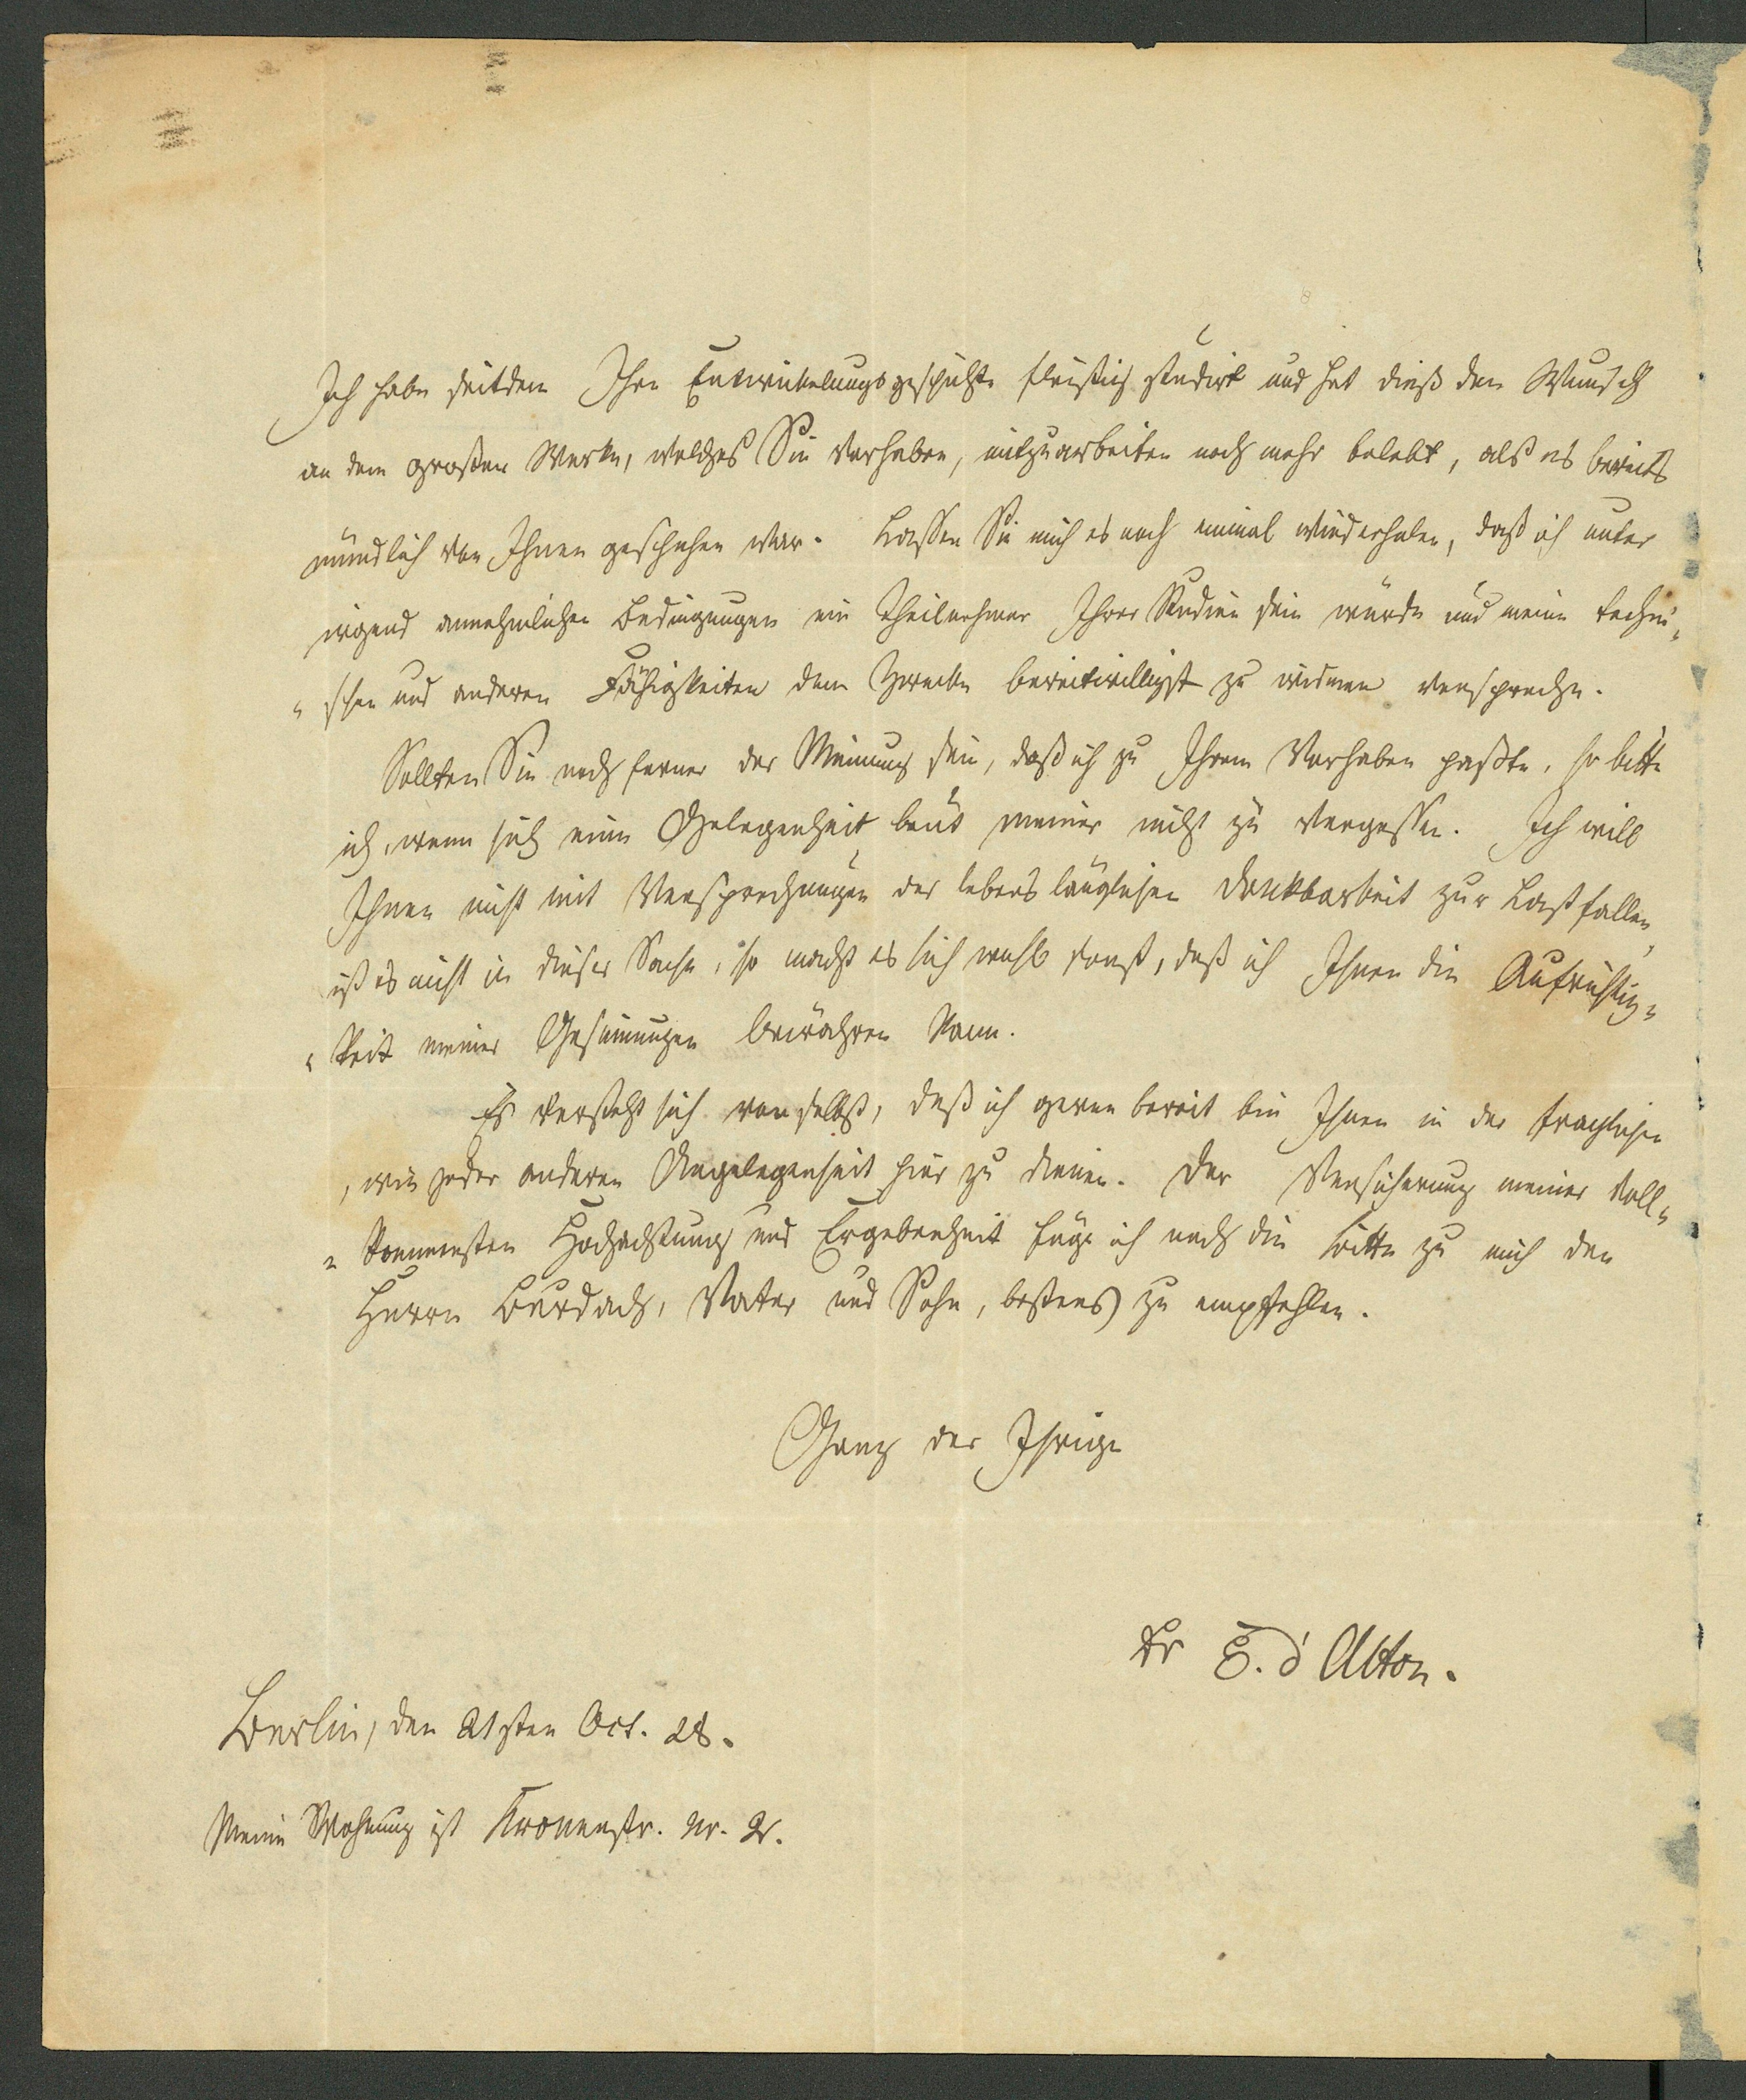 Ich habe seitdem Ihre Entwickelungsgeschichte fleißig studirt und hat dieß den Wunsch
an dem großen Werke, welches Sie vorhaben, mitzuarbeiten noch mehr belebt, als es bereits
mündlich von Ihnen geschehen war. Lassen Sie mich es noch einmal wiederholen, daß ich unter
irgend annehmlichen Bedingungen ein Theilnehmer Ihrer Studien sein würde und meine techni-
-schen und anderen Fähigkeiten dem Zwecke bereitwilligst zu widmen verspreche.
Sollten Sie noch ferner der Meinung sein, daß ich zu Ihrem Vorhaben paßte, so bitte
ich, wenn sich eine Gelegenheit beut meiner nicht zu vergessen. Ich will
Ihnen nicht mit Versprechungen der lebenslänglichen Dankbarkeit zur Last fallen,
ist es nicht in dieser Sache, so macht es sich wohl sonst, daß ich Ihnen die Aufrichtig-
-keit meiner Gesinnungen bewähren kann.
Es versteht sich von selbst, daß ich gerne bereit bin Ihnen in der fraglichen
, wie jeder anderen Angelegenheit hier zu dienen. Der Versicherung meiner voll-
-kommensten Hochachtung und Ergebenheit füge ich noch die Bitte zu mich den
Herrn Burdach, Vater und Sohn, bestens zu empfehlen.
Ganz der Ihrige
Dr E. d'Alton.
Berlin, den 21sten Oct. 28.
Meine Wohnung ist Kronenstr. Nr. 2.